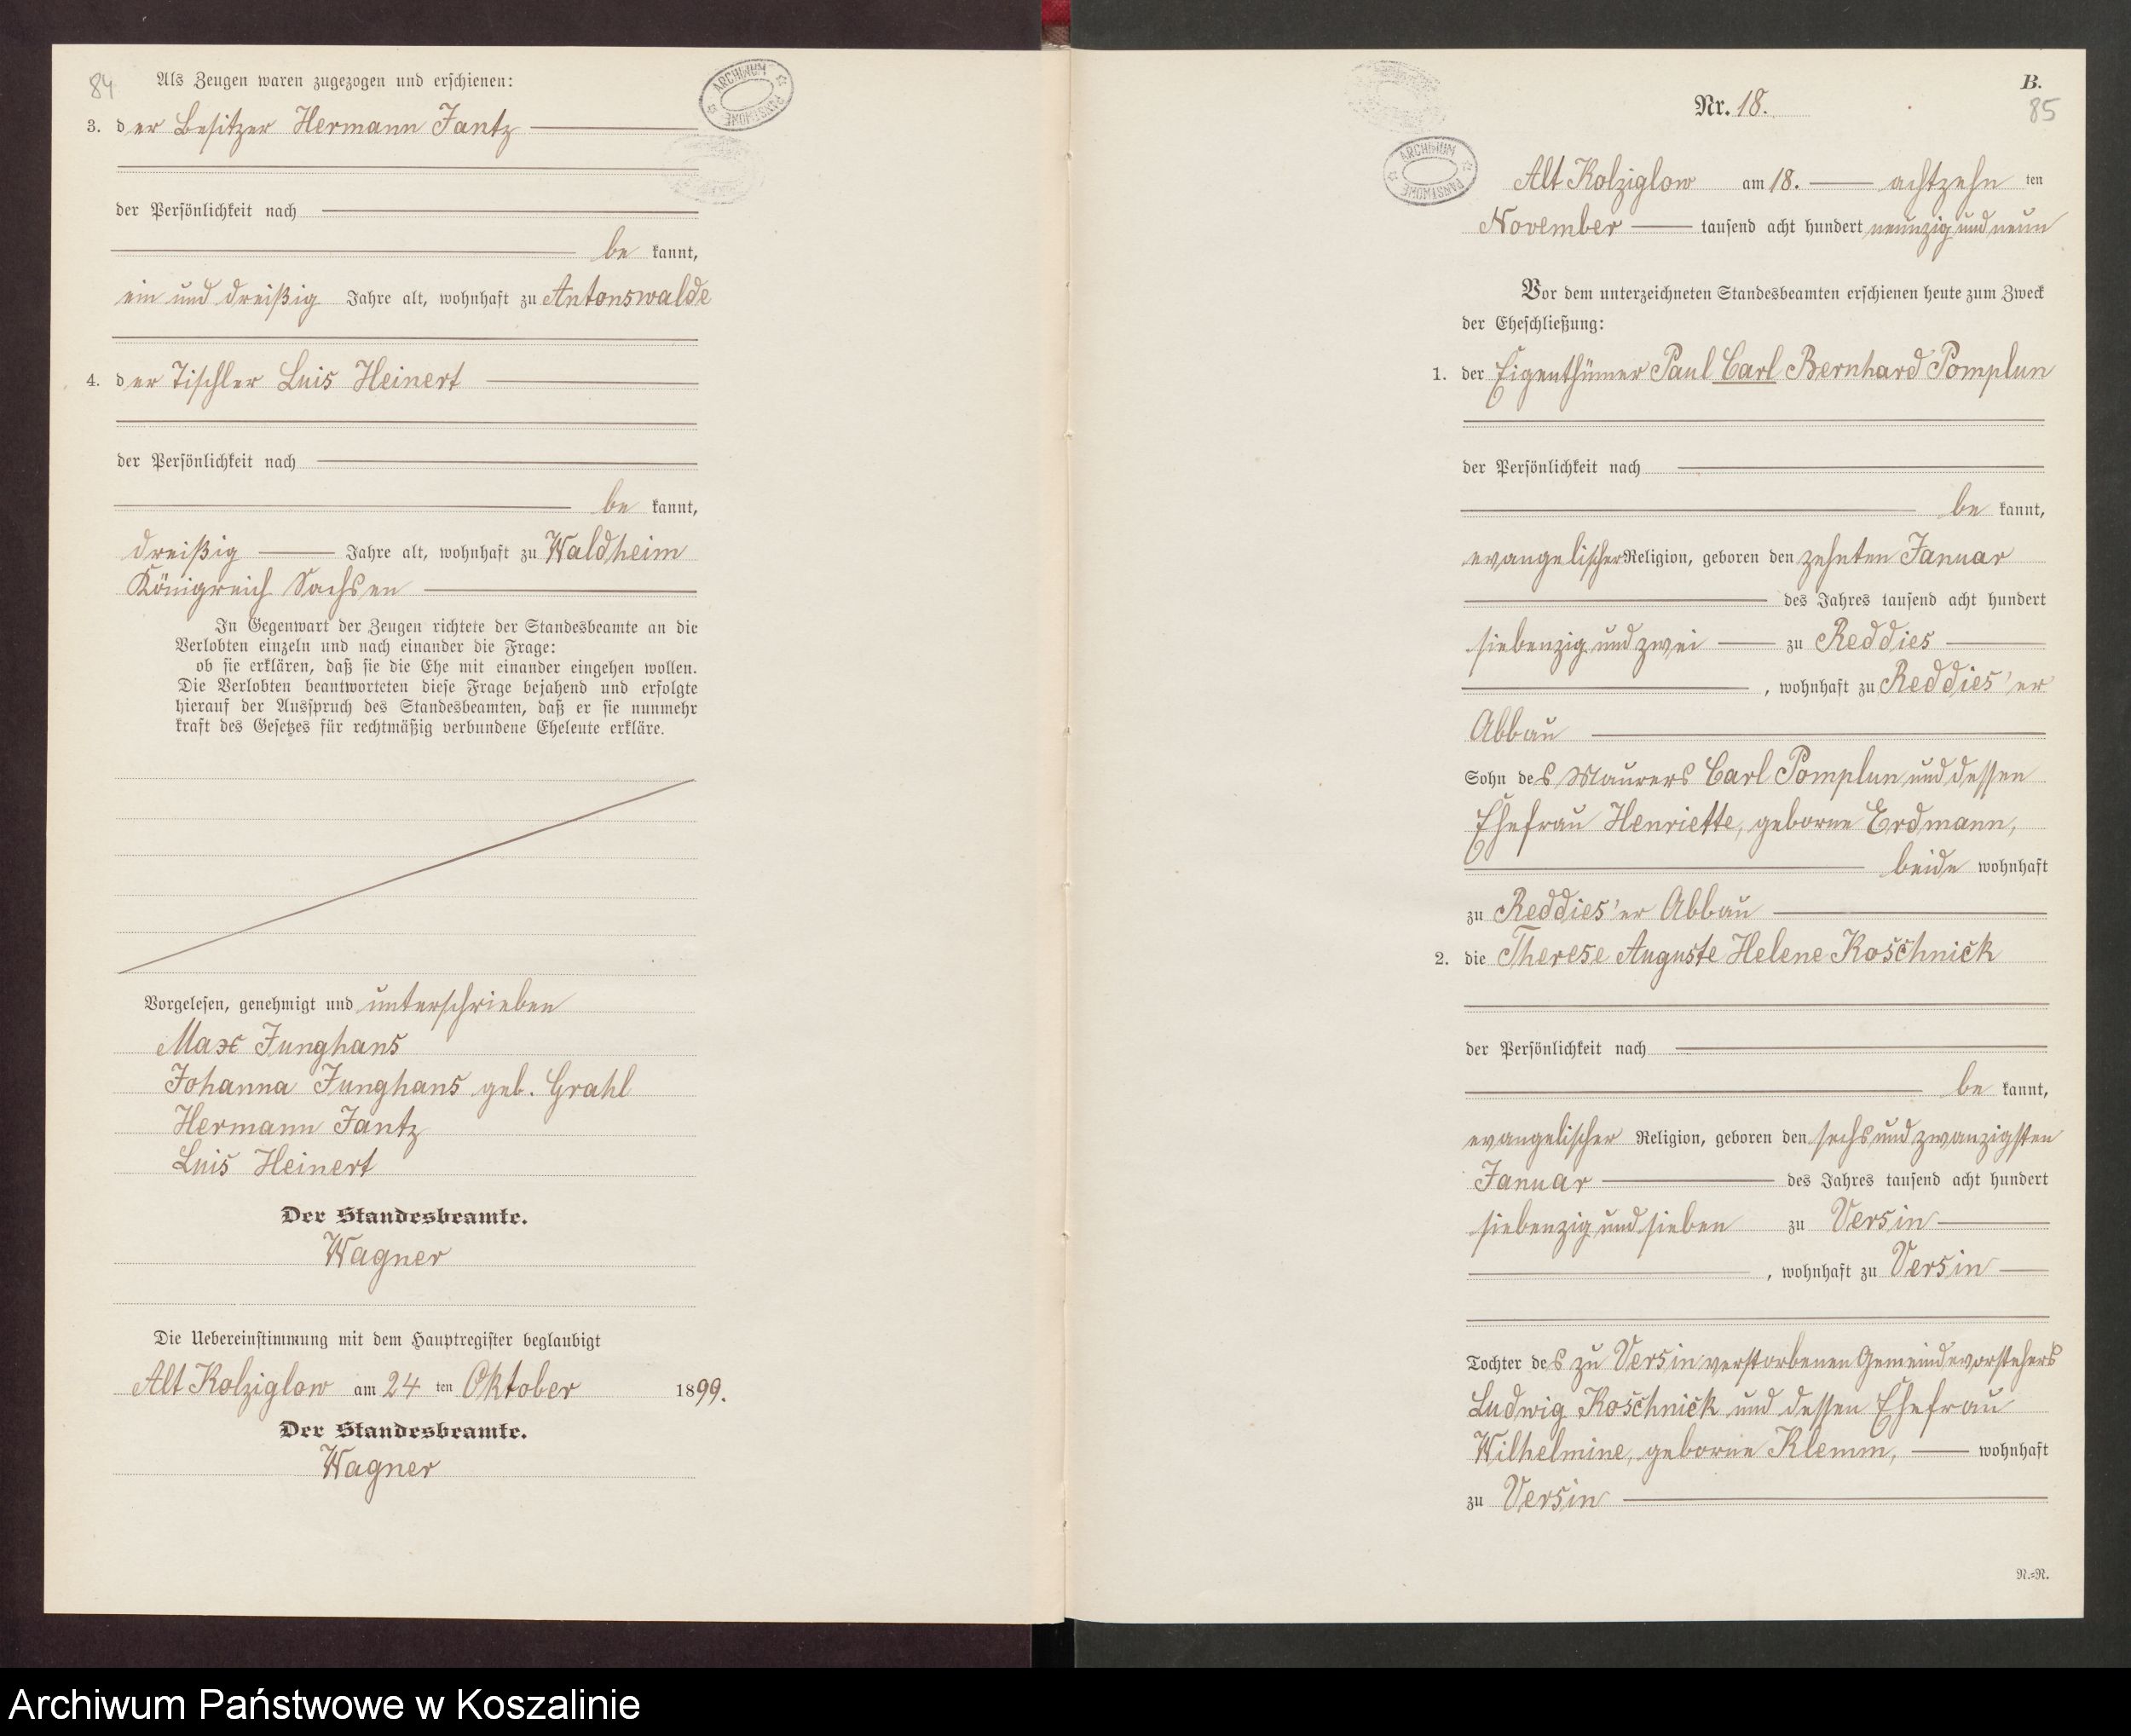 84
Als Zeugen waren zugezogen und erschienen:
3. der Besitzer Hermann Jantz
der Persönlichkeit nach
be kannt,
ein und dreißig Jahre alt, wohnhaft zu Antonswalde
4. der Tischler Luis Heinert
der Persönlichkeit nach
be kannt,
dreißig Jahre alt, wohnhaft zu Waldheim
Königreich Sachsen
In Gegenwart der Zeugen richtete der Standesbeamte an die
Verlobten einzeln und nach einander die Frage:
ob sie erklären, daß sie die Ehe mit einander eingehen wollen.
Die Verlobten beantworteten diese Frage bejahend und erfolgte
hierauf der Ausspruch des Standesbeamten, daß er sie nunmehr
kraft des Gesetzes für rechtmäßig verbundene Eheleute erkläre.
Vorgelesen, genehmigt und unterschrieben
Max Junghans
Johanna Junghans geb. Grahl
Hermann Jantz
Luis Heinert
Der Standesbeamte.
Wagner
Die Uebereinstimmung mit dem Hauptregister beglaubigt
Alt Kolziglow am 24 ten Oktober 1899.
Der Standesbeamte.
Wagner
ARCHIWUM PAŃSTWOWE
B.
Nr. 18.
85
ARCHIWUM PAŃSTWOWE
Alt Kolziglow am 18. achtzehn ten
November tausend acht hundert neunzig und neun
Vor dem unterzeichneten Standesbeamten erschienen heute zum Zweck
der Eheschließung:
1. der Eigenthümer Paul Carl Bernhard Pomplun
der Persönlichkeit nach
be kannt,
evangelischer Religion, geboren den zehnten Januar
des Jahres tausend acht hundert
siebenzig und zwei zu Reddies
, wohnhaft zu Reddies'er
Abbau
Sohn des Maurers Carl Pomplun und dessen
Ehefrau Henriette, geborne Erdmann,
beide wohnhaft
zu Reddies'er Abbau
2. die Therese Auguste Helene Koschnick
der Persönlichkeit nach
be kannt,
evangelischer Religion, geboren den sechs und zwanzigsten
Januar des Jahres tausend acht hundert
siebenzig und sieben zu Versin
, wohnhaft zu Versin
Tochter des zu Versin verstorbenen Gemeindevorstehers
Ludwig Koschnick und dessen Ehefrau
Wilhelmine, geborne Klemm, wohnhaft
zu Versin
N.=N.
Archiwum Państwowe w Koszalinie